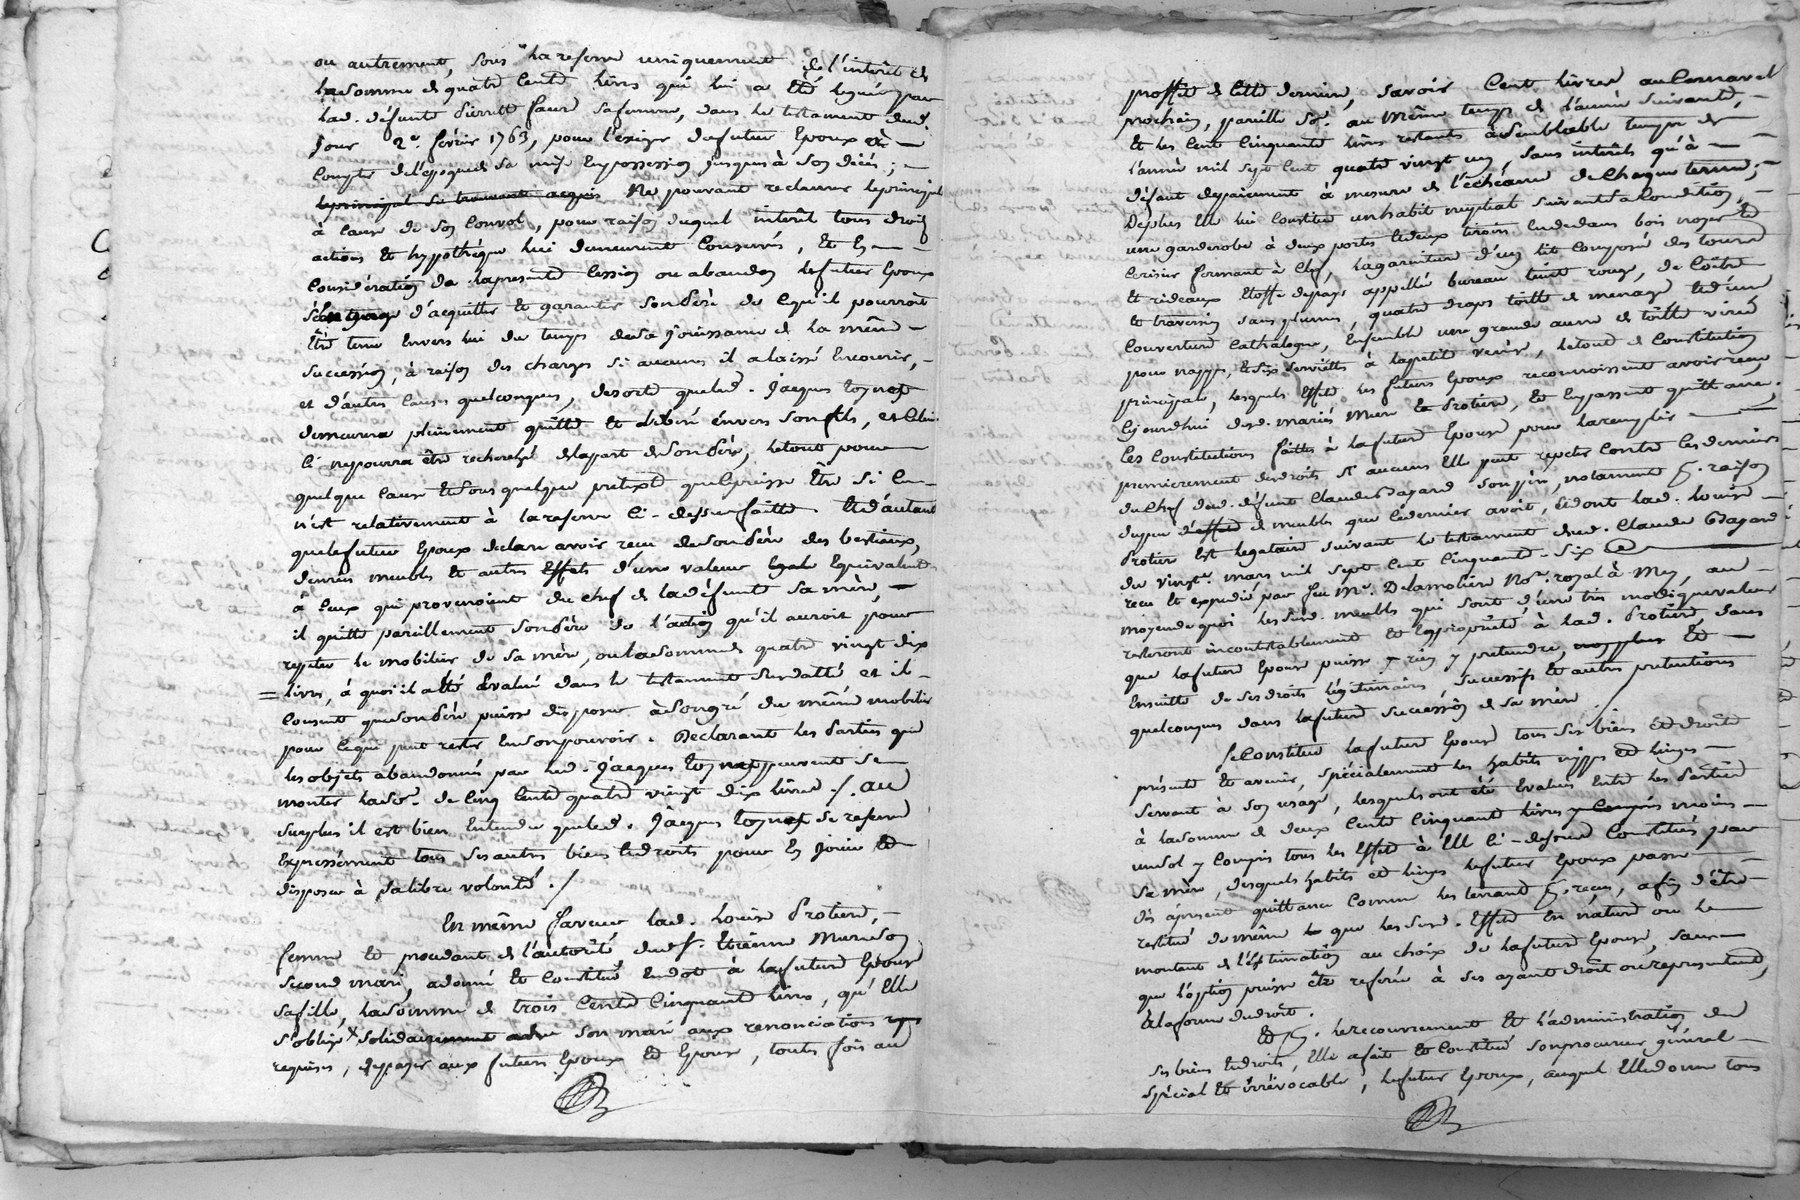 ou autrement, sous la reserve uniquement de l'interêt de
la somme de quatre cents livres qui lui a été leguée par
lad. defunte Pierrette faure sa femme, dans le testament dud.
jour 2e. février 1763, pour l'exiger du futur Epoux à —
compter de l'époque de sa mise en possession jusques à son décés; —
le principal se trouvant acquis ne pouvant reclamer le principal
à cause de son convol, pour raison duquel interêt tous droits
actions et hypothéque lui demeurent conservés, et en —
considération de la presente cession ou abandon le futur Epoux
s'engage d'acquitter et garantir son Pére de ce qu'il pourroit
être tenu envers lui du temps de sa jouissance de la même —
succession, à raison des charges si aucunes il a laissé encourir, —
et d'autres causes quelconques, de sorte que led. Jacques
demeurera pleinement quitte et libéré envers son fils, et celui
ci ne pourra être recherché de la part de son Pére, le tout pour
quelque cause et sous quelque pretexte que ce puisse être si ce —
n'est relativement à la reserve ci-dessus faitte. Et d'autant
que le futur Epoux declare avoir reçu de son Pére des bestiaux,
denrées meubles et autres effets d'une valeur egale équivalente
à ceux qui provenoient du chef de la défunte sa mére, —
il quitte pareillement son Pére de l'action qu'il auroit pour
repeter le mobilier de sa mére, ou la somme de quatre vingt dix
livres, à quoi il a été évalué dans le testament susdatté et il —
consent que son Pére puisse disposer à son gré du même mobilier
pour ce qui peut rester en son pouvoir. Declarant les Parties que
les objets abandonnés par led. Jacques peuvent se
monter la so.e de cinq cents quatre vingt dix livres ./. au
surplus il est bien entendu que led. Jacques se reserve
expressément tous ses autres biens et droits pour en jouir et
disposer à sa libre volonté ./
En même faveur lad. Louise Protiere, —
femme et procedant de l'autorité dud. s.r Etienne
second mari, a donné et constitué en dot à la future Epouse
sa fille, la somme de trois cents cinquante livres, qu'elle
s'oblige x solidairement avec son mari aux renonciations
requises, de payer aux futurs Epoux et Epouse, toutes fois au
proffit de cette derniere, savoir cent livres au Carnaval
prochain, pareille so.e au même temps de l'année suivante, —
et les cent cinquante livres restants à semblable temps de
l'année mil sept cent quatre vingt un, sans interêts qu'à —
défaut de paiement à mesure de l'échéance de chaque terme; —
De plus elle lui constitue un habit nuptial suivant sa condition, —
une garderobe à deux portes et deux tiroirs en dedans bois noyer et
cerisier fermant à clef, la garniture d'un lit composé des tours
et rideaux étoffe de pays appellé bureau teint rouge, de coitre
et traversin sans plumes, quatre draps toille de menage et d'une
couverture Cathalogne, ensemble une grande aune de toille
pour nappe, et six serviettes à la petite, le tout de constitution
principale, lesquels effets les futurs Epoux reconnoissent avoir reçu
cejourdhui desd. mariés et Protiere, et en passent quittance.
Les constitutions faittes à la future Epouse pour la remplir —
premierement des droits si aucuns elle peut repeter contre ces derniers
du chef dud. défunt Claude Pagand son pére, notament p. raison
du peu d'effets et meubles que ce dernier avoit, et dont lad. Louise —
Protier est legataire suivant le testament dud. Claude Pagand
du vingt.e mars mil sept cent cinquante-six —
reçu et expedié par feu M.e Delamoliere No.re royal à, au —
moyen de quoi lesdits meubles qui sont d'une trés modique valeur
resteront incontestablement en propriété à lad. Protiere, sans
que la future Epouse puisse rien y pretendre, et —
ensuitte de ses droits légitimaires, successifs et autres pretentions
quelconques dans la future succession de sa mére /
Se constitue la future Epouse tous ses biens et droits
présents et avenir, spécialement les habits nippes et linges —
servant à son usage, lesquels ont été évalués entre les Parties
à la somme de deux cents cinquante livres y compris moins —
un sol y compris tous les effets à elle ci-dessus constitués par
sa mére, desquels habits et linges le futur Epoux passe —
dés àpresent quittance comme les tenant p. reçus, afin d'être
restitué de même que lesdits effets en nature ou le —
montant de l'estimation au choix de la future Epouse, sans —
que l'option puisse être referée à ses ayant droit ou representants,
et la forme du droit.
Et p. le recouvrement et l'administration de
ses biens et droits, elle a fait et constitué son procureur général —
spécial et irrévocable, le futur Epoux, auquel elle donne tous